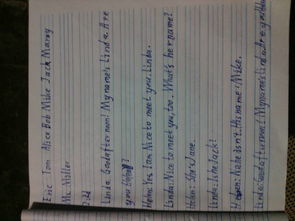 Eric Tom Alice Bob Mike Jack
Mr. Miller
Linda: Good afternoon! My name's Linda. Are
you
Helen: Yes, I am. Nice to meet you, Linda.
Linda: Nice to meet you, too. What's her name?
Helen: She's Jane.
Linda: Is he Jack?
Helen: No, he isn't. His name's Mike.
Linda: Good afternoon! My name's Linda. Are you